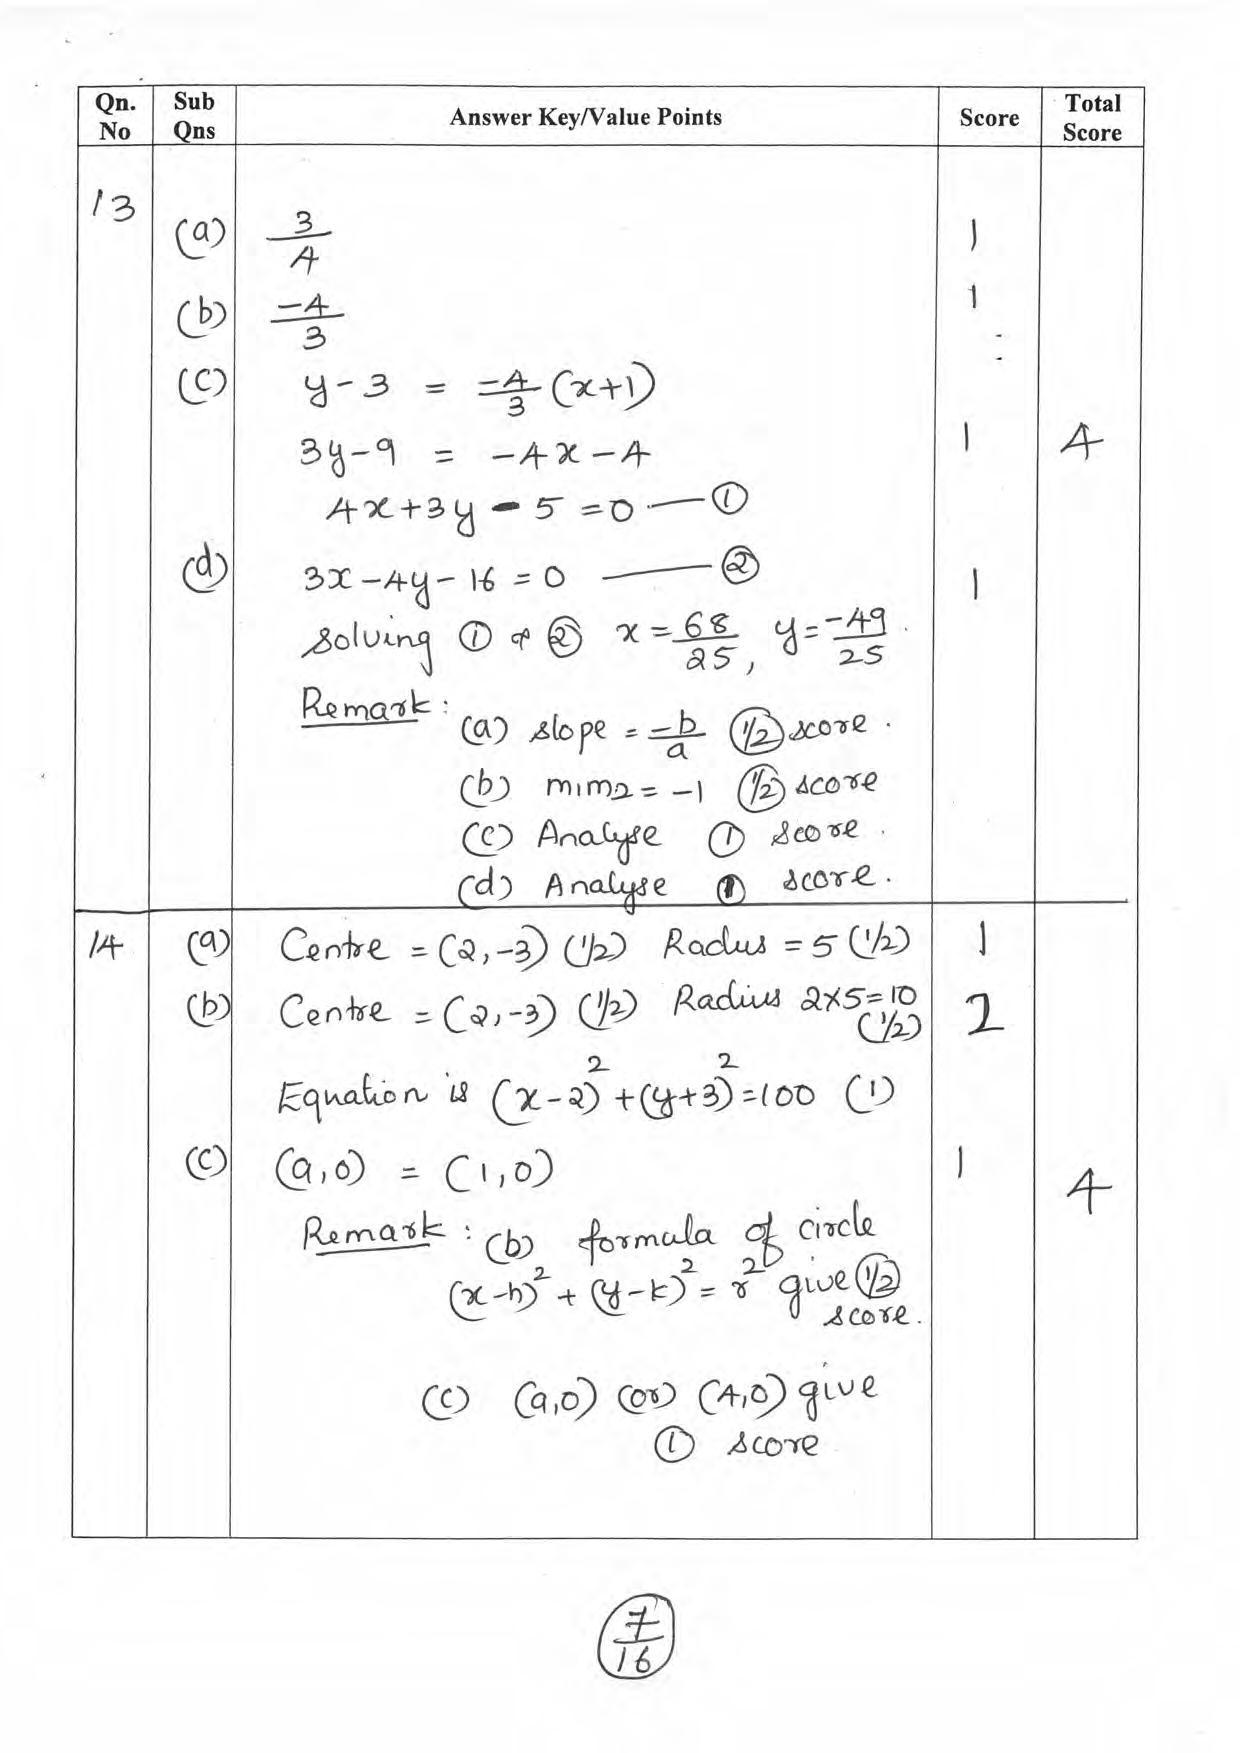 Qn. No | Sub Qns | Answer Key/Value Points | Score | Total Score
13 (a) 3/4 1
(b) -4/3 1
(c) y-3 = -4/3 (x+1)
3y-9 = -4x-4 1 4
4x+3y-5=0 — ①
(d) 3x-4y-16=0 — ② 1
Solving ① & ② x = 68/25, y = -49/25.
Remark: (a) slope = -b/a (1/2) score.
(b) m1m2 = -1 (1/2) score
(c) Analyse ① score.
(d) Analyse ① score.
14 (a) Centre = (2,-3) (1/2) Radius = 5 (1/2) 1
(b) Centre = (2,-3) (1/2) Radius 2×5=10 (1/2) 2
Equation is (x-2)²+(y+3)²=100 (1)
(c) (a,0) = (1,0) 1 4
Remark: (b) formula of circle
(x-h)² + (y-k)² = r² give (1/2) score.
(c) (a,0) (or) (4,0) give
① score
7/16